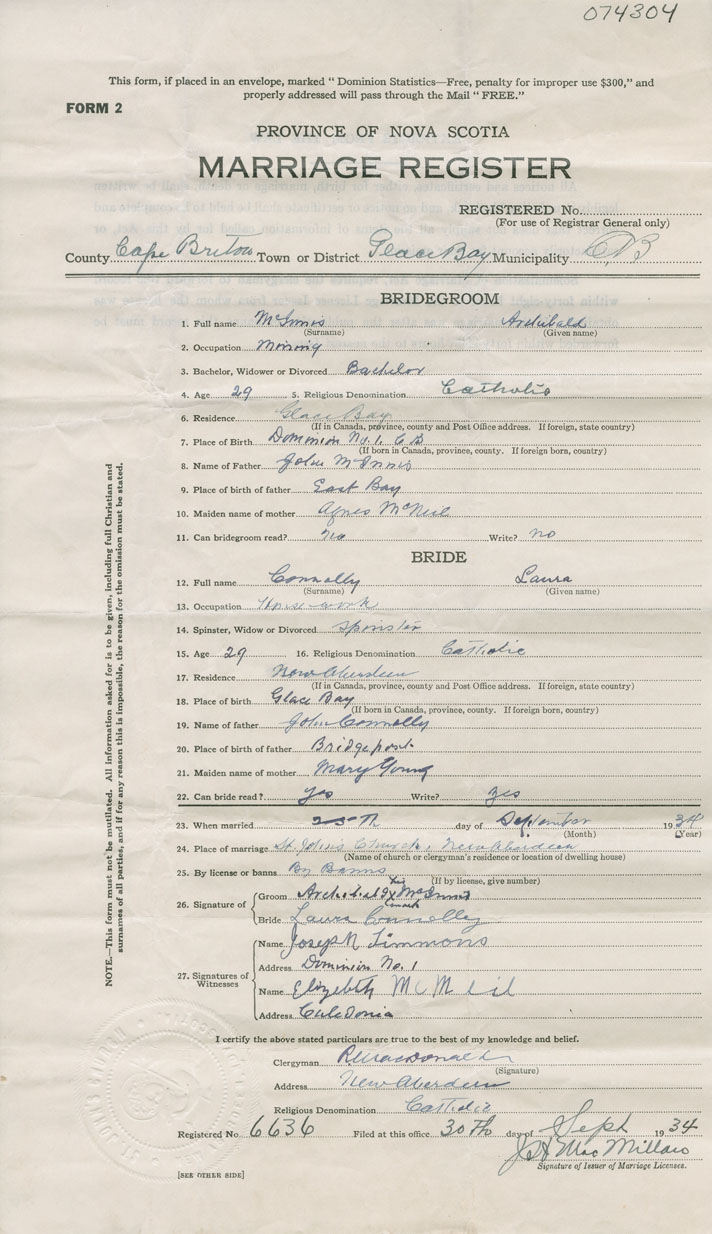 074304
This form, if placed in an envelope, marked " Dominion Statistics—Free, penalty for improper use $300," and
properly addressed will pass through the Mail " FREE."
FORM 2
PROVINCE OF NOVA SCOTIA
MARRIAGE REGISTER
REGISTERED No.
(For use of Registrar General only)
County Cape Breton Town or District Glace Bay Municipality CB
BRIDEGROOM
1. Full name McInnis Archibald
(Surname) (Given name)
2. Occupation Mining
3. Bachelor, Widower or Divorced Bachelor
4. Age 29 5. Religious Denomination Catholic
6. Residence Glace Bay
(If in Canada, province, county and Post Office address. If foreign, state country)
7. Place of Birth Dominion No. 1, C B
(If born in Canada, province, county. If foreign born, country)
8. Name of Father John McInnis
9. Place of birth of father East Bay
10. Maiden name of mother Agnes McNeil
11. Can bridegroom read? no Write? no
BRIDE
12. Full name Connolly Laura
(Surname) (Given name)
13. Occupation House-work
14. Spinster, Widow or Divorced Spinster
15. Age 29 16. Religious Denomination Catholic
17. Residence New Aberdeen
(If in Canada, province, county and Post Office address. If foreign, state country)
18. Place of birth Glace Bay
(If born in Canada, province, county. If foreign born, country)
19. Name of father John Connolly
20. Place of birth of father Bridgeport
21. Maiden name of mother Mary Young
22. Can bride read? yes Write? yes
23. When married 25th day of September 1934
(Month) (Year)
24. Place of marriage St. John's Church, New Aberdeen
(Name of church or clergyman's residence or location of dwelling house)
25. By license or banns By Banns
(If by license, give number)
26. Signature of
Groom Archibald his X mark McInnis
Bride Laura Connolley
27. Signatures of Witnesses
Name Joseph Simmons
Address Dominion No. 1
Name Elizabeth
Address Caledonia
I certify the above stated particulars are true to the best of my knowledge and belief.
Clergyman MacDonald
(Signature)
Address New Aberdeen
Religious Denomination Catholic
Registered No. 6636 Filed at this office 30th day of Sept 1934
MacMillan
Signature of Issuer of Marriage Licenses.
[SEE OTHER SIDE]
NOTE.—This form must not be mutilated. All information asked for is to be given, including full Christian and
surnames of all parties, and if for any reason this is impossible, the reason for the omission must be stated.